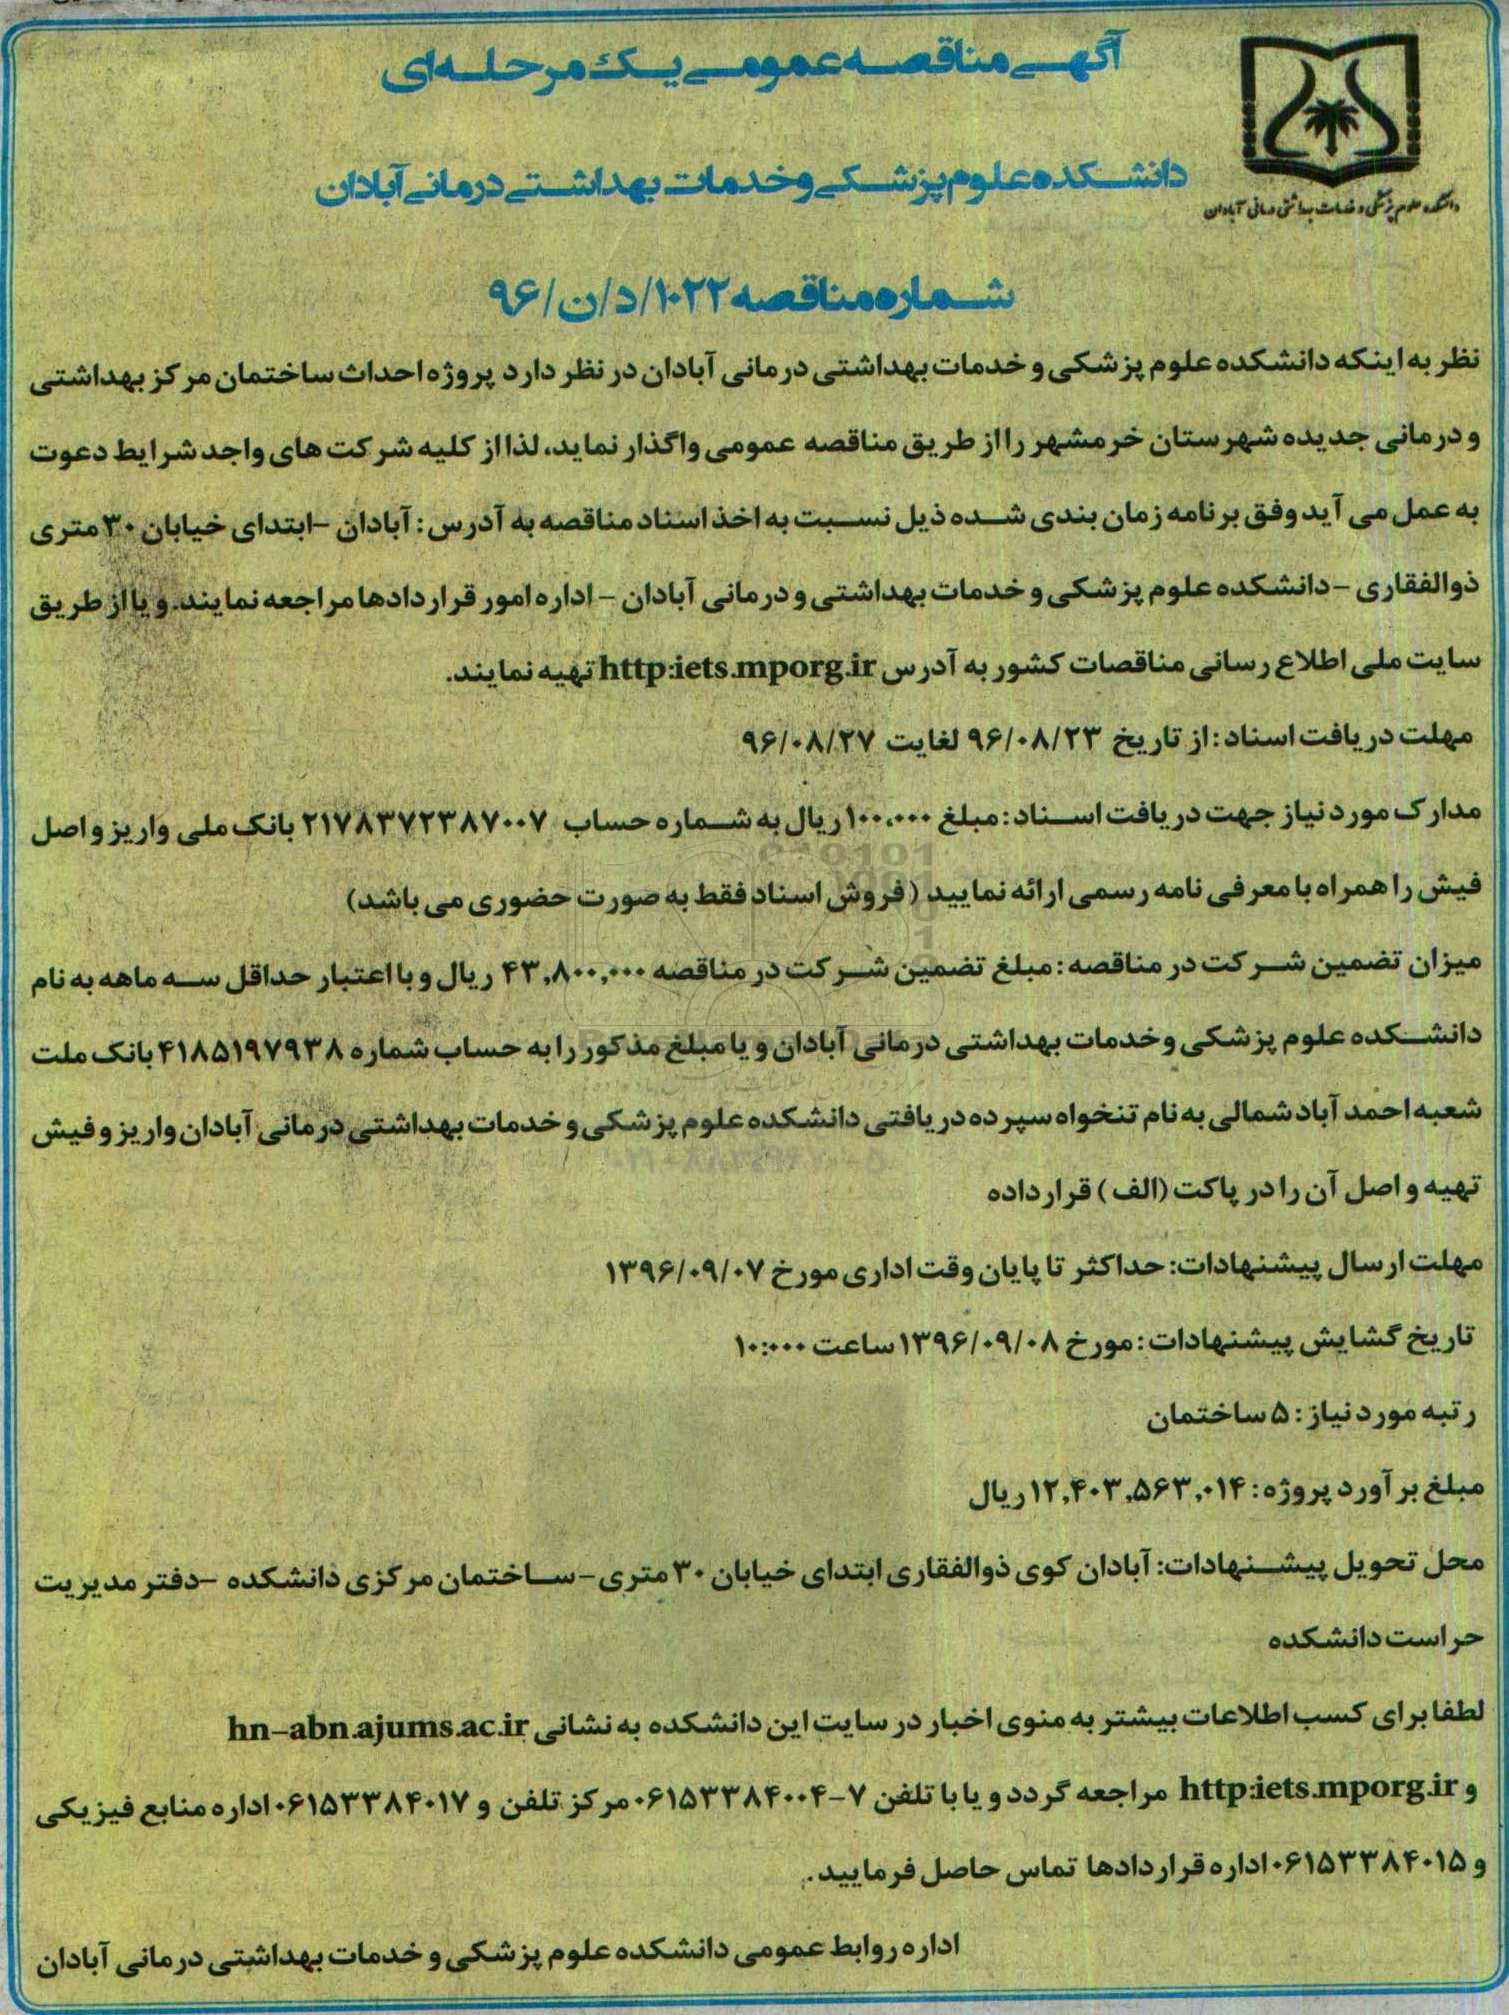 آگهی مناقصه عمومی یک مرحله‌ای
دانشکده علوم پزشکی و خدمات بهداشتی درمانی آبادان
دانشکده علوم پزشکی و خدمات بهداشتی درمانی آبادان
شماره مناقصه ۱۰۲۲/د/ن/۹۶
نظر به اینکه دانشکده علوم پزشکی و خدمات بهداشتی درمانی آبادان در نظر دارد پروژه احداث ساختمان مرکز بهداشتی
و درمانی جدیده شهرستان خرمشهر را از طریق مناقصه عمومی واگذار نماید، لذا از کلیه شرکت های واجد شرایط دعوت
به عمل می آید وفق برنامه زمان بندی شده ذیل نسبت به اخذ اسناد مناقصه به آدرس: آبادان -ابتدای خیابان ۳۰ متری
ذوالفقاری -دانشکده علوم پزشکی و خدمات بهداشتی و درمانی آبادان - اداره امور قراردادها مراجعه نمایند. و یا از طریق
سایت ملی اطلاع رسانی مناقصات کشور به آدرس http:iets.mporg.ir تهیه نمایند.
مهلت دریافت اسناد: از تاریخ ۹۶/۰۸/۲۳ لغایت ۹۶/۰۸/۲۷
مدارک مورد نیاز جهت دریافت اسناد: مبلغ ۱۰۰،۰۰۰ ریال به شماره حساب ۲۱۷۸۳۷۲۳۸۷۰۰۷ بانک ملی واریز و اصل
فیش را همراه با معرفی نامه رسمی ارائه نمایید (فروش اسناد فقط به صورت حضوری می باشد)
میزان تضمین شرکت در مناقصه: مبلغ تضمین شرکت در مناقصه ۴۳,۸۰۰,۰۰۰ ریال و با اعتبار حداقل سه ماهه به نام
دانشکده علوم پزشکی وخدمات بهداشتی درمانی آبادان و یا مبلغ مذکور را به حساب شماره ۴۱۸۵۱۹۷۹۳۸ بانک ملت
شعبه احمد آباد شمالی به نام تنخواه سپرده دریافتی دانشکده علوم پزشکی و خدمات بهداشتی درمانی آبادان واریز و فیش
تهیه و اصل آن را در پاکت (الف) قرارداده
مهلت ارسال پیشنهادات: حداکثر تا پایان وقت اداری مورخ ۱۳۹۶/۰۹/۰۷
تاریخ گشایش پیشنهادات: مورخ ۱۳۹۶/۰۹/۰۸ ساعت ۱۰:۰۰۰
رتبه مورد نیاز: ۵ ساختمان
مبلغ برآورد پروژه: ۱۲,۴۰۳,۵۶۳,۰۱۴ ریال
محل تحویل پیشنهادات: آبادان کوی ذوالفقاری ابتدای خیابان ۳۰ متری- ساختمان مرکزی دانشکده -دفتر مدیریت
حراست دانشکده
لطفا برای کسب اطلاعات بیشتر به منوی اخبار در سایت این دانشکده به نشانی hn-abn.ajums.ac.ir
و http:iets.mporg.ir مراجعه گردد و یا با تلفن ۷-۰۶۱۵۳۳۸۴۰۰۴ مرکز تلفن و ۰۶۱۵۳۳۸۴۰۱۷ اداره منابع فیزیکی
و ۰۶۱۵۳۳۸۴۰۱۵ اداره قراردادها تماس حاصل فرمایید.
اداره روابط عمومی دانشکده علوم پزشکی و خدمات بهداشتی درمانی آبادان